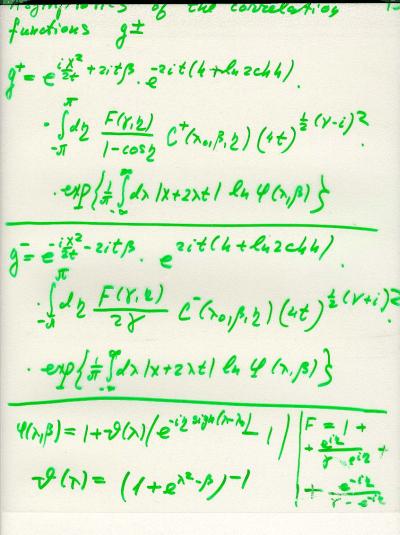 Asymptotics of the correlation
functions g±
g⁺ = e^{ix²/2t + 2itβ} · e^{-2it(h + ln 2ch h)} ·
· ∫_{-π}^{π} dη F(γ,η)/(1-cosη) C⁺(λ₀,β,η) (4t)^{½(ν-i)²} ·
· exp{1/π ∫_{-∞}^{∞} dλ |x+2λt| ln φ(λ,β)}
g⁻ = e^{-ix²/2t - 2itβ} · e^{2it(h + ln 2ch h)} ·
· ∫_{-π}^{π} dη F(γ,η)/2γ C⁻(λ₀,β,η) (4t)^{½(ν+i)²}
· exp{1/π ∫_{-∞}^{∞} dλ |x+2λt| ln φ(λ,β)}
φ(λ,β) = 1 + ϑ(λ)(e^{-iη sign(λ-λ₀)} - 1)
ϑ(λ) = (1 + e^{λ²-β})^{-1}
F = 1 +
+ e^{iη}/(γ - e^{iη}) +
+ e^{-iη}/(γ - e^{-iη})